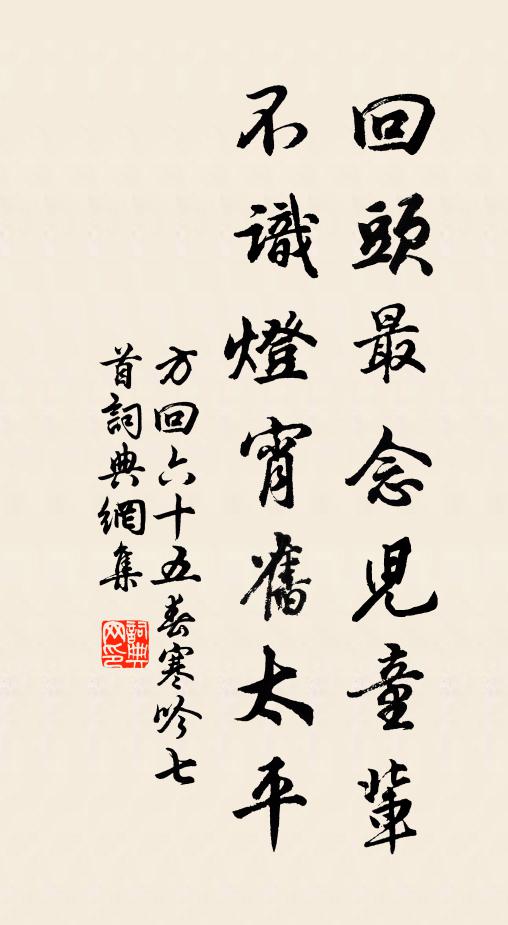 回頭最念兒童輩
不識燈宵舊太平
方回六十五春寒吟七
首詞典網集
詞典
网印